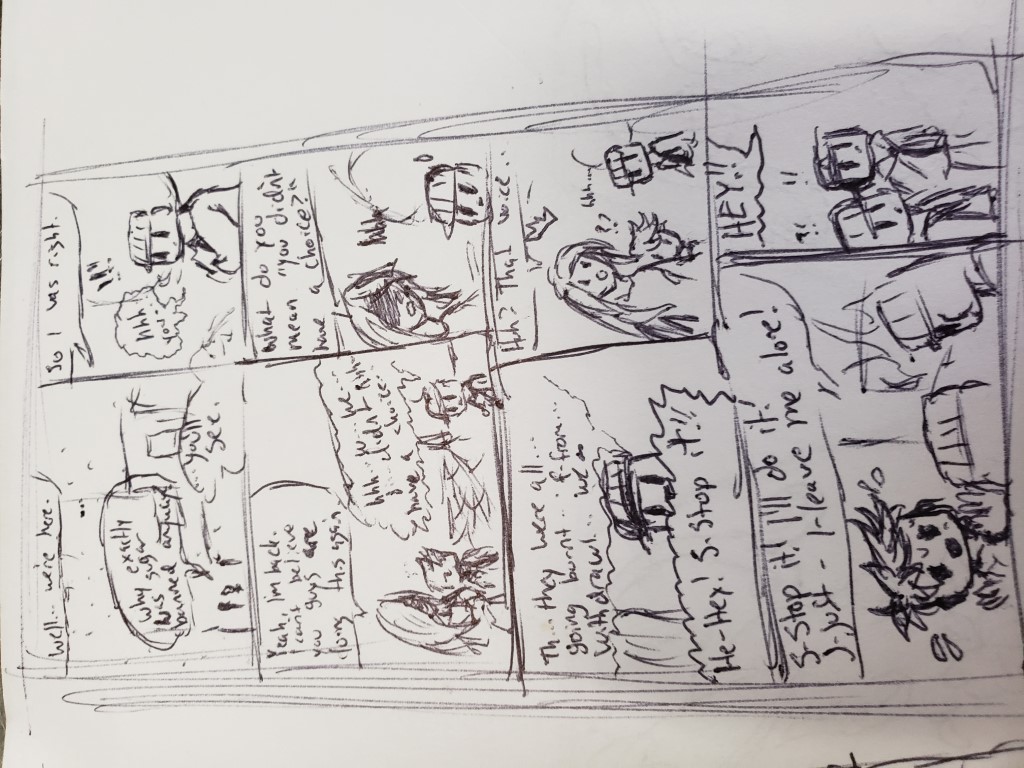 Well... we're here.
Why exactly
was sugar
banned anyways
...you'll
see.
So I was right.
!!!
hhh
you..
Yeah, I'm back.
I can't believe
you guys are
doing this again.
hhh... w.. we...
I... didn't hhh..
have a choice..
What do you
mean "you didn't
have a choice?"
hhh..
Th... they were all...
going burnt... f-from...
withdrawl... we
He-Hey! S-Stop it!!
Huh? That voice...
??
hhh...
S-Stop it! I'll do it!
J-Just - l-leave me alone!
HEY!!
?!
!!